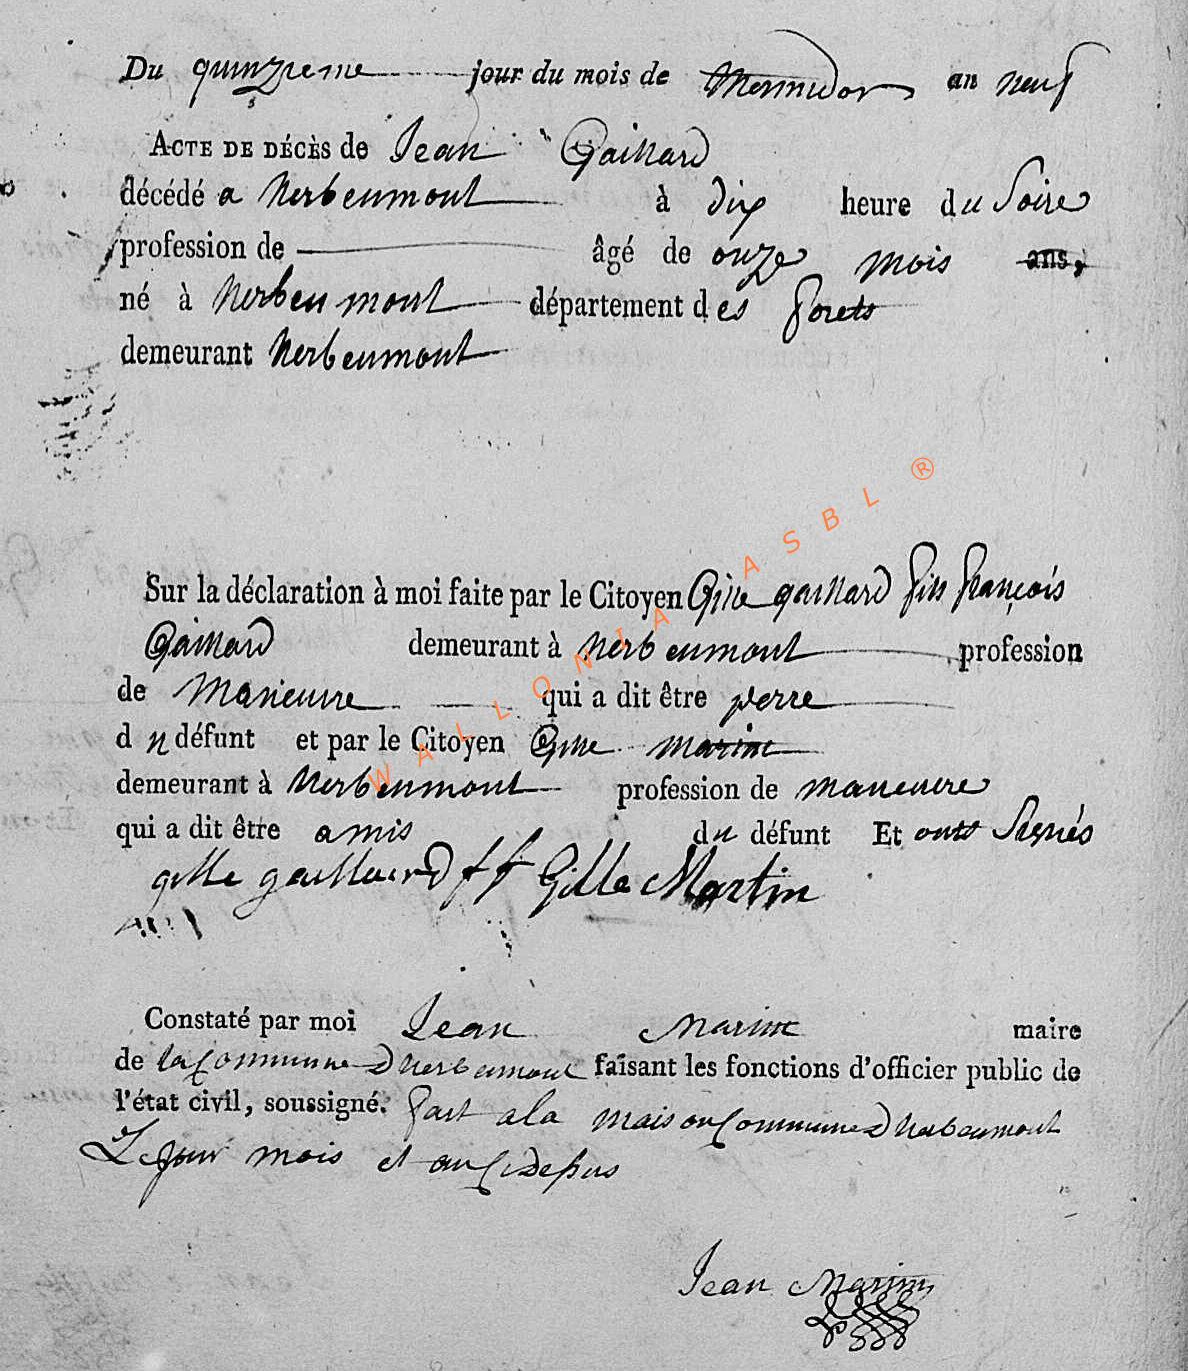 Du quinzieme jour du mois de Thermidor an neuf
ACTE DE DÉCÈS de Jean Gaillard
décédé a herbeumont à dix heure du Soire
profession de âgé de onze mois ans,
né à herbeumont département des forets
demeurant herbeumont
Sur la déclaration à moi faite par le Citoyen Gille gaillard fils françois
Gaillard demeurant à herbeumont profession
de maneuvre qui a dit être perre
du défunt et par le Citoyen Gille martin
demeurant à herbeumont profession de maneuvre
qui a dit être amis du défunt Et onts Signés
gille gaillard ff Gille Martin
Constaté par moi Jean Martin maire
de la Commune Dherbeumont faisant les fonctions d'officier public de
l'état civil, soussigné. fait a la maison Commune Dherbeumont
Le jour mois et an Ci Desus
Jean Martin
WALLONIA ASBL ®